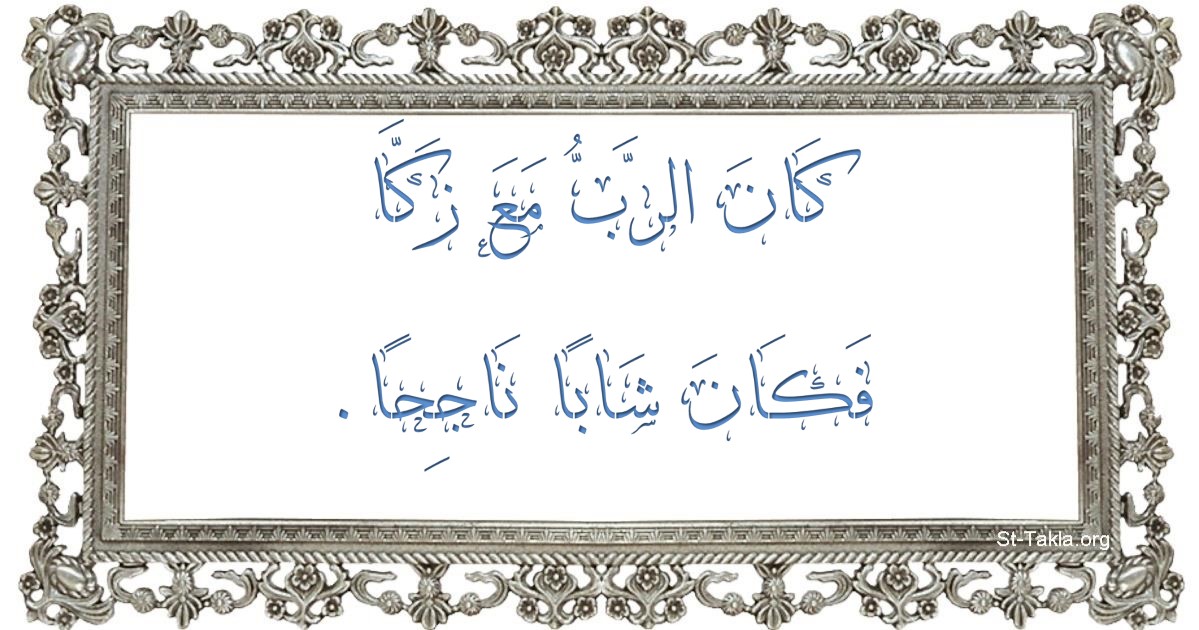 كَانَ الرَّبُّ مَعَ زَكَّا
فَكَانَ شَابًا نَاجِحًا .
St-Takla.org